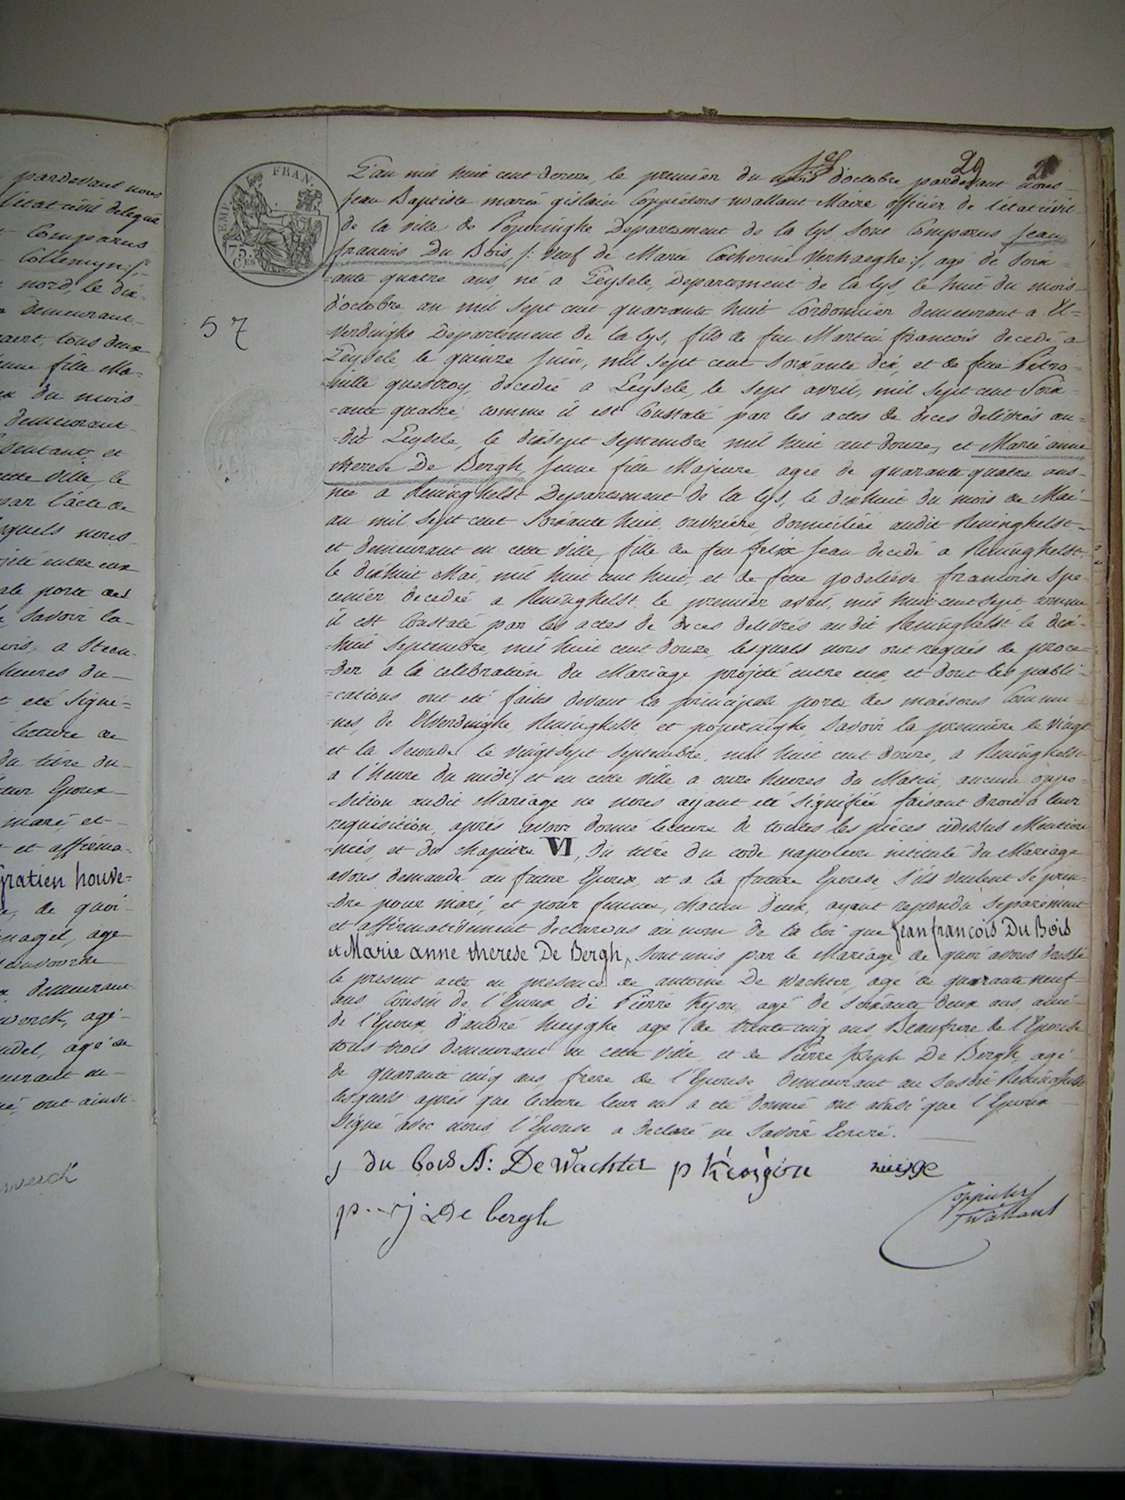 pardevant nous
l'état civil delegué
Comparus
nord, le dix-
demeurant
tous deux
jeune fille Ma-
du mois
demeurant
cette Ville, le
par l'acte de
lesquels nous
projeté entre eux
porte des
Savoir la
heures du
été signi-
lecture de
du titre du
Epoux
mari et
et affirma-
gratien houve-
de quoi
age
demeurant
werck, agé
agé de
demeurant
ont ainsi
werck
FRAN
75
57
29
L'an mil huit cent douze, le premier du mois d'octobre pardevant nous
Jean Baptiste marin gislain Coppietters wallant Maire officier de l'état civil
de la ville de Poperinghe Departement de la lys sont Comparus Jean
francois Du Bois, /: Veuf de Marie Catherine Verhaeghe :/, agé de Soix-
ante quatre ans, né a Leysele, Departement de la lys le huit du mois
d'octobre an mil sept cent quarante huit Cordonnier demeurant a El-
verdinghe Departement de la lys, fils de feu Martin francois decedé a
Leysele, le quinze Juin, mil sept cent Soixante dix, et de feue Petro-
nille questroy, decedée a Leysele, le Sept avril, mil sept cent Soix-
ante quatre, comme il est Constaté par les actes de deces delivrés au-
dit Leysele, le dixsept Septembre mil huit cent douze, et Marie anne
therese De Bergh, Jeune fille Majeure agée de quarante quatre ans
née a Reninghelst Departement de la Lys, le dixhuit du mois de Mai
an mil Sept cent Soixante huit, ouvrière, domiciliée audit Reninghelst
et demeurant en cette Ville, fille de feu felix Jean decedé a Reninghelst
le dixhuit Mai, mil huit cent huit, et de feue godelieve francoise Spe-
cenier decedée a Reninghelst le premier avril, mil huit cent sept comme
il est Constaté par les actes de deces delivrés audit Reninghelst le dix-
huit Septembre, mil huit cent douze, lesquels nous ont requis de proce-
der a la celebration du Mariage projeté entre eux et dont les publi-
cations ont été faites devant la principale porte des maisons Commu-
nes, de Elverdinghe Reninghelst et poperinghe, Savoir la première le Vingt
et la Seconde le vingtsept Septembre, mil huit cent douze, a Reninghelst
a l'heure du midi, et en cette Ville a onze heures du Matin, aucune oppo-
sition audit Mariage ne nous ayant été Signifiée faisant droit a leur
requisition, après avoir donné lecture de toutes les pièces cidessus Mention-
nées, et du chapitre VI, du titre du code napoleon intitulé du Mariage
avons demandé au futur Epoux, et a la future Epouse, S'ils veulent se pren-
dre pour mari, et pour femme, chacun d'eux, ayant repondu Separement
et affirmativement declarons au nom de la loi que Jean francois Du Bois
et Marie anne therese De Bergh, Sont unis par le Mariage de quoi avons dressé
le present acte en presence de antoine De Wachter, agé de quarante neuf
ans Cousin de l'Epoux de Pierre Keyon, agé de Soixante deux ans, ami
de l'Epoux, d'andré Nuyghe agé de trente cinq ans Beaufrere de l'Epouse
tous trois demeurant en cette Ville, et de Pierre Joseph De Bergh, agé
de quarante cinq ans, frere de l'Epouse, demeurant au Susdit Reninghelst
lesquels après que lecture leur en a été donnée ont ainsi que l'Epoux
Signé avec nous l'Epouse a declaré ne Savoir Ecrire.
j du bois A: De Wachter p Keoigon nuigge
p. j. De bergh